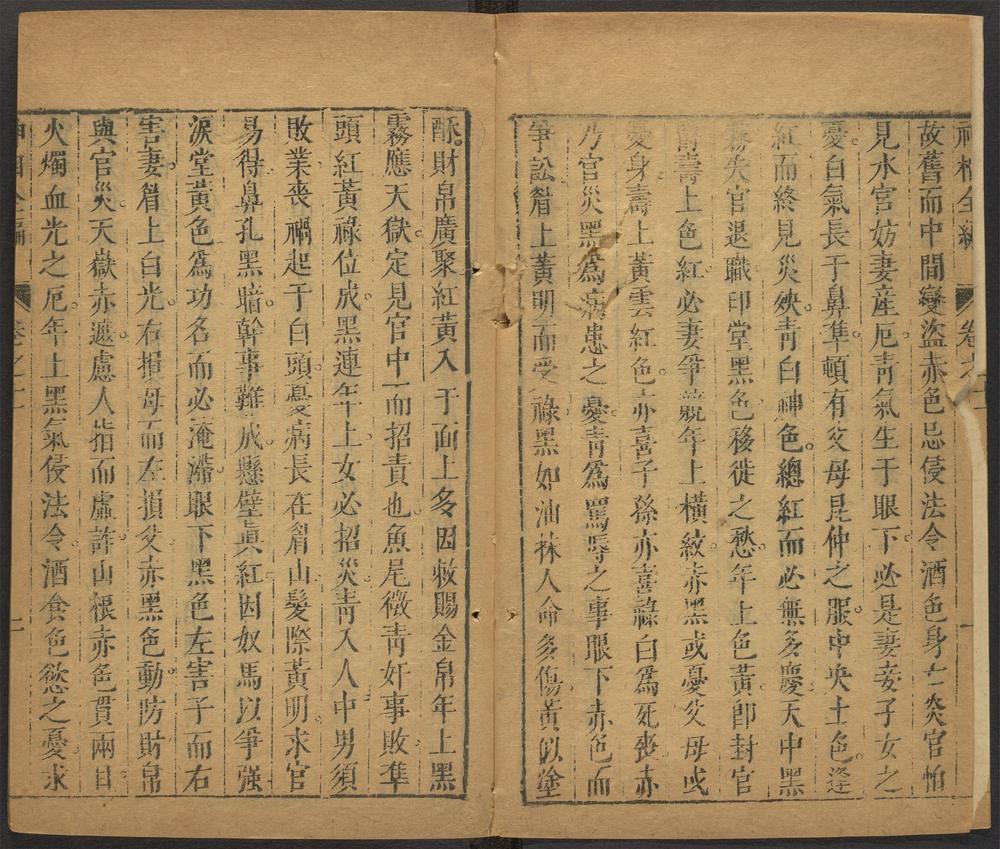 神相全編 卷之
故舊而中間變盜赤色忌侵法令酒色身亡炎官怕
見水宮妨妻産厄靑氣生于眼下必是妻妾子女之
憂白氣長于鼻準頓有父母昆仲之服中央土色逢
紅而終見災殃靑白神色總紅而必無多慶天中黑
霧失官退職印堂黑色移徙之愁年上色黃卽封官
壽上色紅必妻爭競年上橫紋赤黑或憂父母或
憂身壽上黃雲紅色亦喜子孫亦喜祿白爲死喪赤
乃官災黑爲病患之憂靑爲罵辱之事眼下赤色而
爭訟眉上黃明而受祿黑如油抹人命多傷黃似塗
酥財帛廣聚紅黃入于面上多因敕賜金帛年上黑
霧應天獄定見官中而招責也魚尾微靑奸事敗準
頭紅黃祿位成黑連年上女必招災靑入人中男須
敗業喪禍起于白頭憂病長在眉山髮際黃明求官
易得鼻孔黑暗幹事難成懸壁眞紅因奴馬以爭強
淚堂黃色爲功名而必淹滯眼下黑色左害子而右
害妻眉上白光右損母而左損父赤黑色動防財帛
與官災天嶽赤遮慮人指而虛詐山根赤色貫兩目
火燭血光之厄年上黑氣侵法令酒食色慾之憂求
神相全編 卷之二 二